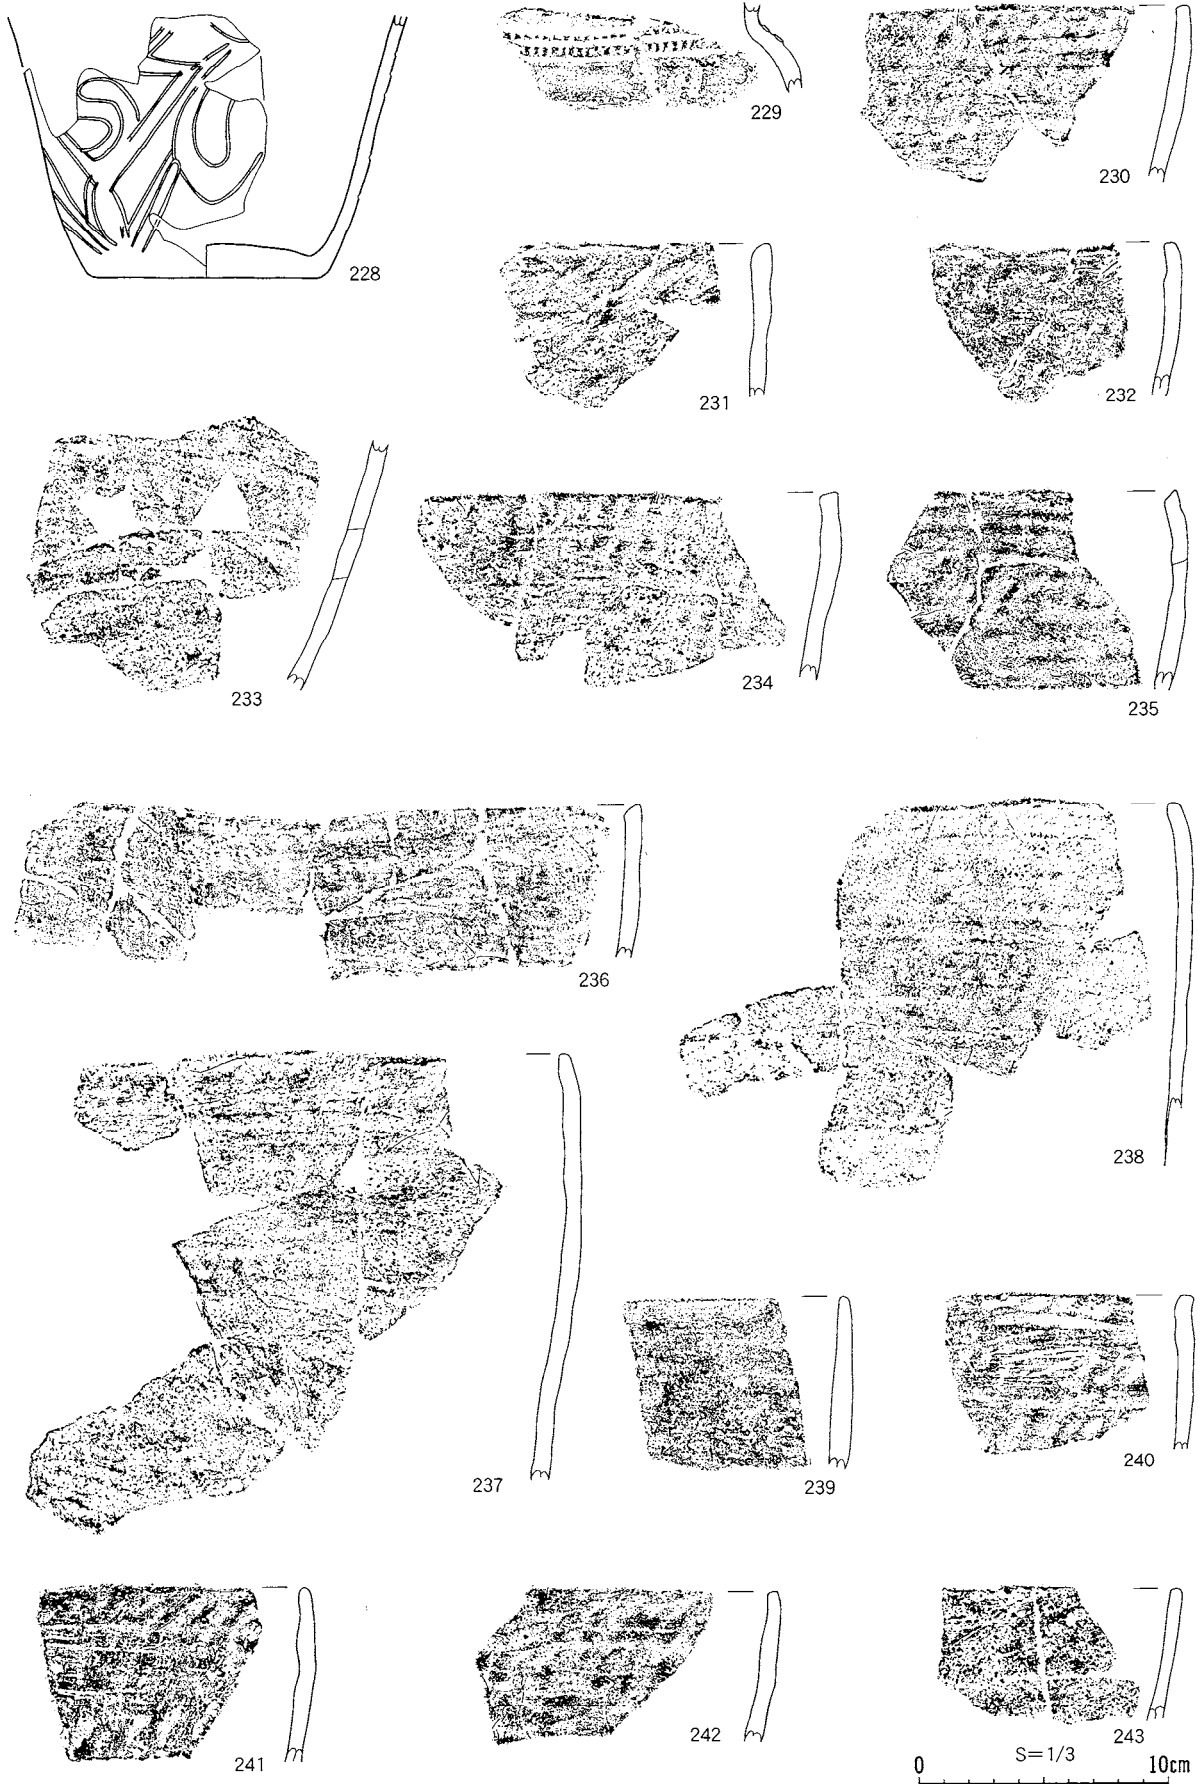 228
229
230
231
232
233
234
235
236
237
238
239
240
241
242
243
S=1/3
0 10cm